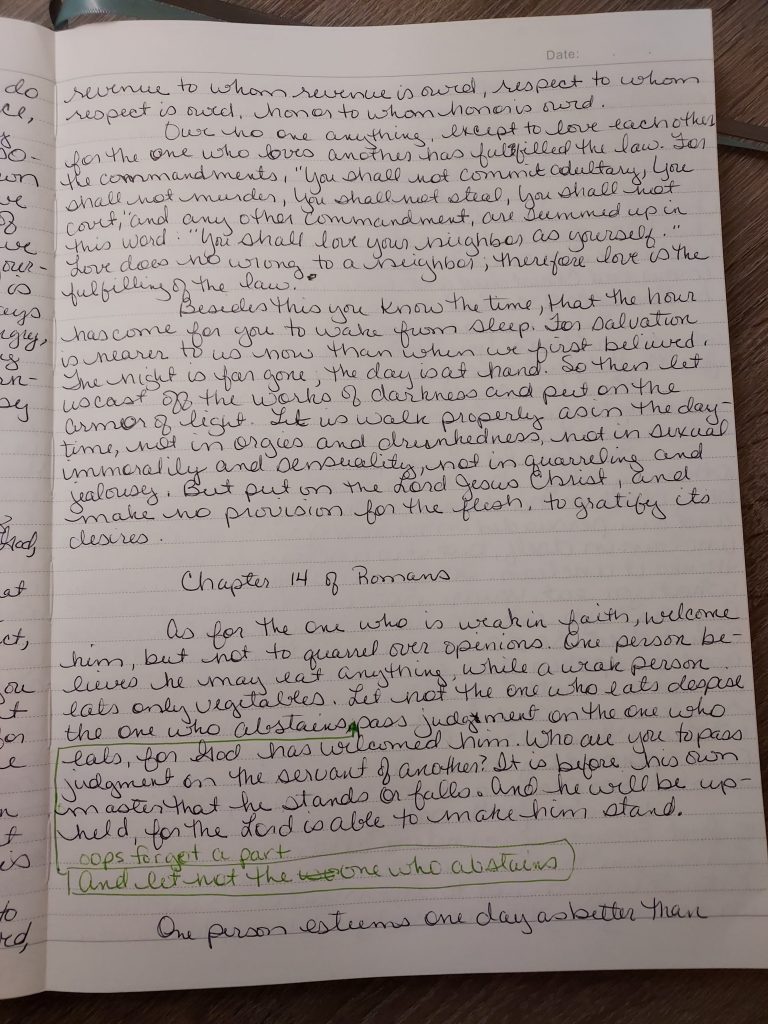 do
ce,
Date:
revenue to whom revenue is owed, respect to whom
respect is owed, honor to whom honor is owed.
Owe no one anything, except to love each other
for the one who loves another has fulfilled the law. For
the commandments, "You shall not commit adultary, You
shall not murder, You shall not steal, You shall not
covit," and any other commandment, are summed up in
this word: "You shall love your neighbor as yourself."
Love does no wrong to a neighbor; therefore love is the
fulfilling of the law.
Besides this you know the time, that the hour
has come for you to wake from sleep. For salvation
is nearer to us now than when we first believed.
The night is far gone; the day is at hand. So then let
us cast off the works of darkness and put on the
armor of light. Let us walk properly as in the day-
time, not in orgies and drunkedness, not in sexual
immorality and sensuality, not in quarreling and
jealousy. But put on the Lord Jesus Christ, and
make no provision for the flesh, to gratify its
desires.
Chapter 14 of Romans
As for the one who is weak in faith, welcome
him, but not to quarrel over opinions. One person be-
lieves he may eat anything, while a weak person
eats only vegetables. Let not the one who eats despise
the one who abstains, pass judgment on the one who
eats, for God has welcomed him. Who are you to pass
judgment on the servant of another? It is before his own
master that he stands or falls. And he will be up-
held, for the Lord is able to make him stand.
oops forget a part
And let not the one who abstains
One person esteems one day as better than